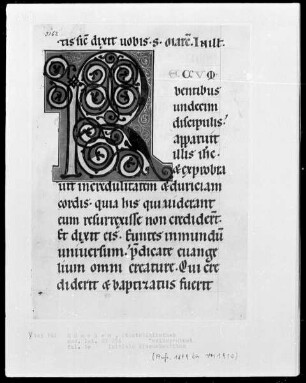 tis sic̄ dixit uobis. S. Marc̄. In illt.
R ECVM
bentibus
undecim
discipulis.
apparuit
illis ihc̄.
& exprobra
uit incredulitatem & duriciam
cordis. quia his qui uiderant
eum resurrexisse non credidert̄.
Et dixit eis. Euntes in mundū
uniuersum. p̄dicate euange
lium omni creature. Qui cre
diderit & baptizatus fuerit